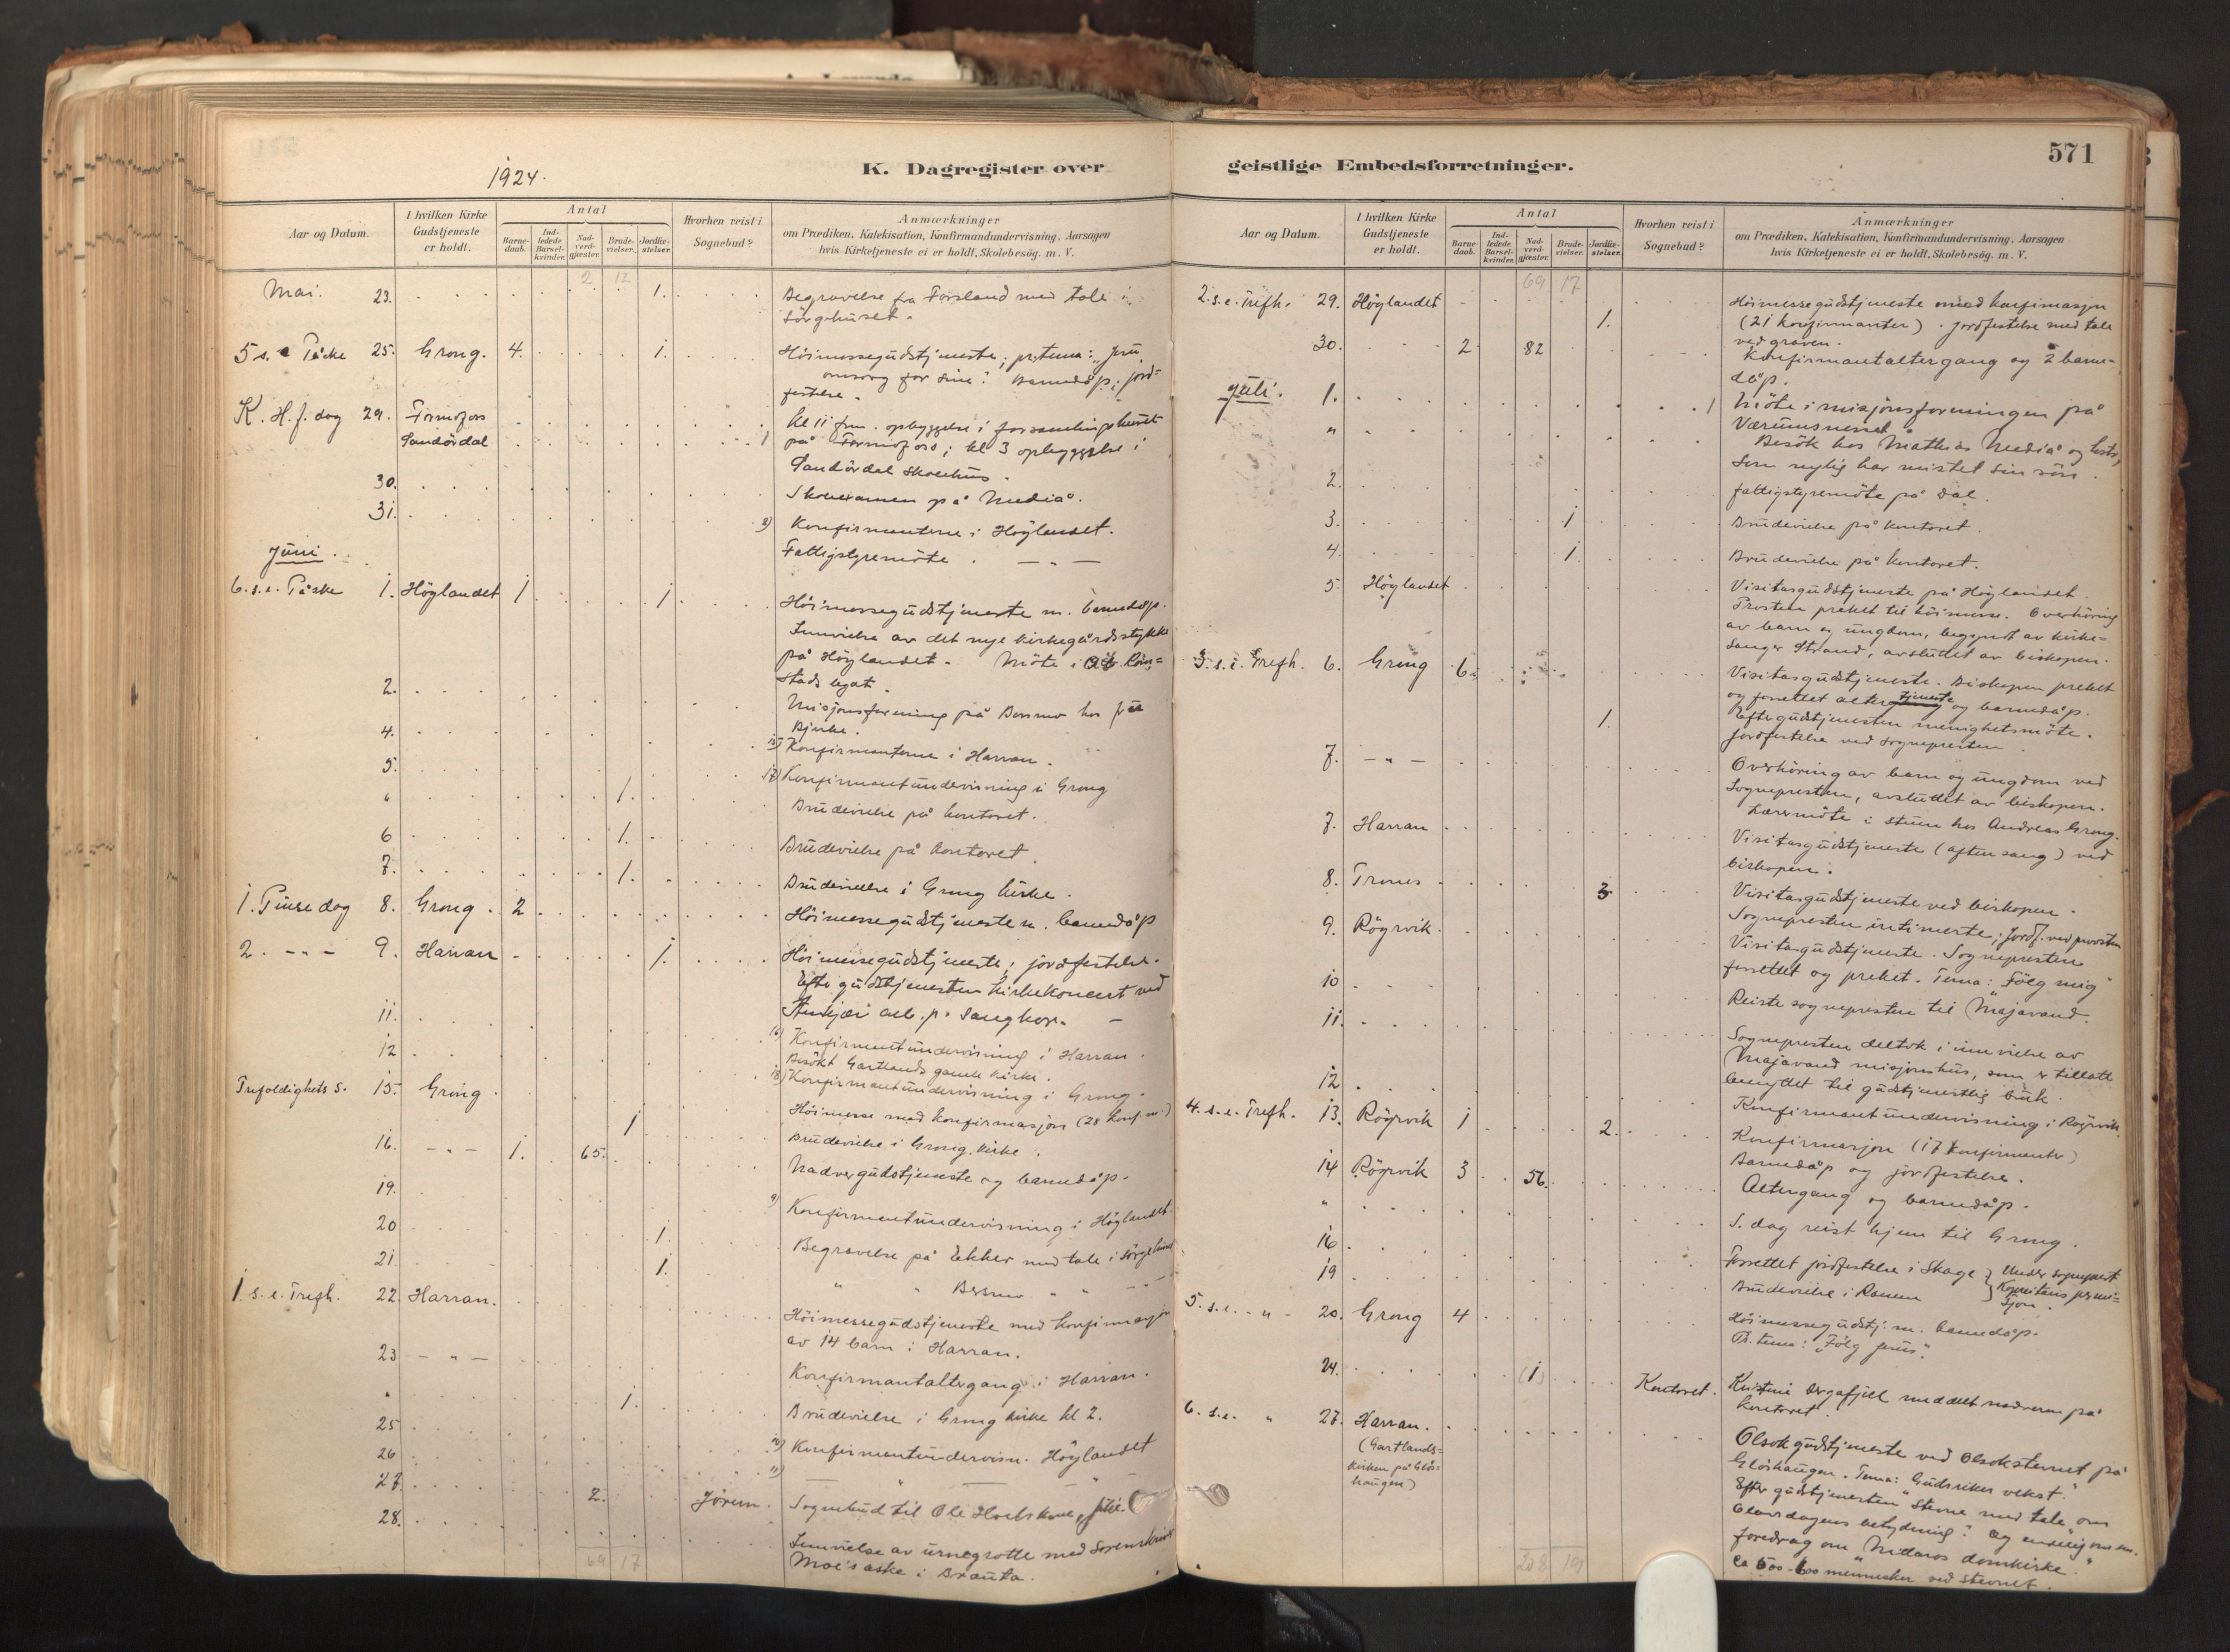 1924.
K. Dagregister over
Aar og Datum.
I hvilken Kirke Gudstjeneste er holdt.
Antal
Barne-daab.
Ind-ledede Barsel-kvinder.
Nad-verd-gjæster.
Brude-vielser.
Jordfæ-stelser.
Hvorhen reist i Sognebud?
Anmærkninger
om Prædiken, Katekisation, Konfirmandundervisning, Aarsagen
hvis Kirketjeneste ei er holdt, Skolebesøg. m. V.
2 12
Mai. 23. 1. Begravelse fra Forsland med tale i
Sörgehuset.
5 s. e Påske 25. Grong. 4. 1. Höimessegudstjeneste; pr.tema: "Jesu
omsorg for sine". Barnedåp; jord-
festelse.
K. H. f. dag 29. Formofors kl 11 fm. opbyggelse i forsamlingshuset
Sandördal på Formofors; kl 3 opbyggelse i
Sandördal skolehus.
30. Skoleexamen på Mediå.
31. 8) Konfirmanterne i Höylandet.
Fattigstyremöte . — " —
Juni.
6. s. e. Påske 1. Höylandet 1 1. Höimessegudstjeneste m. barnedåp.
Innvielse av det nye kirkegårdsstykke
på Höylandet. Möte i
stads legat.
2. Misjonsforening på Bersmo hos fru
Bjerke.
4. 15) Konfirmanterne i Harran.
5. 17) Konfirmantundervisning i Grong
" 1. Brudevielse på kontoret.
6 1. Brudevielse på kontoret.
7. 1. Brudevielse i Grong kirke.
1. Pinsedag 8. Grong. 2 Höimessegudstjeneste m. barnedåp
2. - " - 9. Harran 1. Höimessegudstjeneste; jordfestelse.
Efter gudstjenesten kirkekoncert ved
Steinkjær arb. p. Sangkor. —
11. 16) Konfirmantundervisning i Harran.
Besökt Gartlands gamle kirke.
12 18) Konfirmantundervisning i Grong.
Trefoldighets s. 15. Grong. Höimesse med konfirmasjon (28 konf.m.)
1 Brudevielse i Grong kirke.
16. - " - 1. 65. Nadvergudstjeneste og barnedåp.
19. 9) Konfirmantundervisning i Höylandet
20 1. Begravelse på Ekker med tale i Sörgehuset
21. 1. " " Bersmo " " — " —
1. s. e. Trefh. 22. Harran. Höimessegudstjeneste med konfirmasjon
av 14 barn i Harran.
23 — " — Konfirmantaltergang i Harran.
" 1. Brudevielse i Grong kirke kl 2.
25 10) Konfirmantundervisn. Höylandet
26 11) — " — " —
27. 2. Jörum. Sognebud til Ole
28. Innvielse av urnegrotte med Sorenskriver
Moe's aske i Brauta.
69 17
geistlige Embedsforretninger.
571
Aar og Datum.
I hvilken Kirke Gudstjeneste er holdt.
Antal
Barne-daab.
Ind-ledede Barsel-kvinder.
Nad-verd-gjæster.
Brude-vielser.
Jordfæ-stelser.
Hvorhen reist i Sognebud?
Anmærkninger
om Prædiken, Katekisation, Konfirmandundervisning, Aarsagen
hvis Kirketjeneste ei er holdt, Skolebesøg. m. V.
69 17
2. s. e. Trefh. 29. Höylandet Höimessegudstjeneste med konfirmasjon
1. (21 konfirmanter). Jordfestelse med tale
ved graven.
30. 2 82 Konfirmantaltergang og 2 barne-
dåp.
Juli. 1. Möte i misjonsforeningen på
Værumsnesset
" Besök hos Mathias Mediå og hustr,
som nylig har mistet sin sön.
2. Fattigstyremöte på Dal.
3. 1 Brudevielse på kontoret.
4. 1 Brudevielse på kontoret.
5 Höylandet Visitasgudstjeneste på Höylandet.
Prosten preket til höimesse. Overhöring
av barn og ungdom, begyndt av kirke-
sanger Strand, avsluttet av biskopen.
3. s. e. Trefh. 6. Grong 6. Visitasgudstjeneste. Biskopen preket
og forrettet altertjeneste og barnedåp.
1. Efter gudstjenesten menighetsmöte.
Jordfestelse ved sognepresten.
7. — " — Overhöring av barn og ungdom ved
Sognepresten, avsluttet av biskopen.
Lærermöte i stuen hos Andreas Grong.
7. Harran Visitasgudstjeneste (aftensang) ved
biskopen.
8. Trones 3 Visitasgudstjeneste ved biskopen.
Sognepresten intimerte; Jordf. ved prosten
9. Röyrvik Visitasgudstjeneste. Sognepresten
forrettet og preket. Tema: "Fölg mig"
10 Reiste sognepresten til Majavand.
11. Sognepresten deltok i innvielse av
Majavand misjonshus, som er tillatt
benyttet til gudstjenestlig bruk.
12 Konfirmantundervisning i Röyrvik.
4. s. e. Trefh. 13. Röyrvik 1 2. Konfirmasjon (17 konfirmanter)
Barnedåp og jordfestelse.
14 Röyrvik 3 56. Altergang og barnedåp.
" S. dag reist hjem til Grong.
16 Forrettet jordfestelse i Skage } Under sogneprest
19 Brudevielse i Ranem
5. s. e. - " - 20. Grong 4 Höimessegudstj. m. barnedåp.
Pr. tema: "Fölg Jesus".
24. (1) Kontoret. meddelt nadveren på
kontoret.
6. s. e. " 27. Harran. Olsokgudstjeneste ved Olsokstevnet på
(Gartlands-
kirken på Glös-
haugen)
Glöshaugen. Tema: Gudsrikes vekst.
Efter gudstjenesten stevne med tale "om
Olavsdagens betydning". Og
foredrag om "Nidaros domkirke".
Ca 500-600 mennesker ved stevnet.
208 19